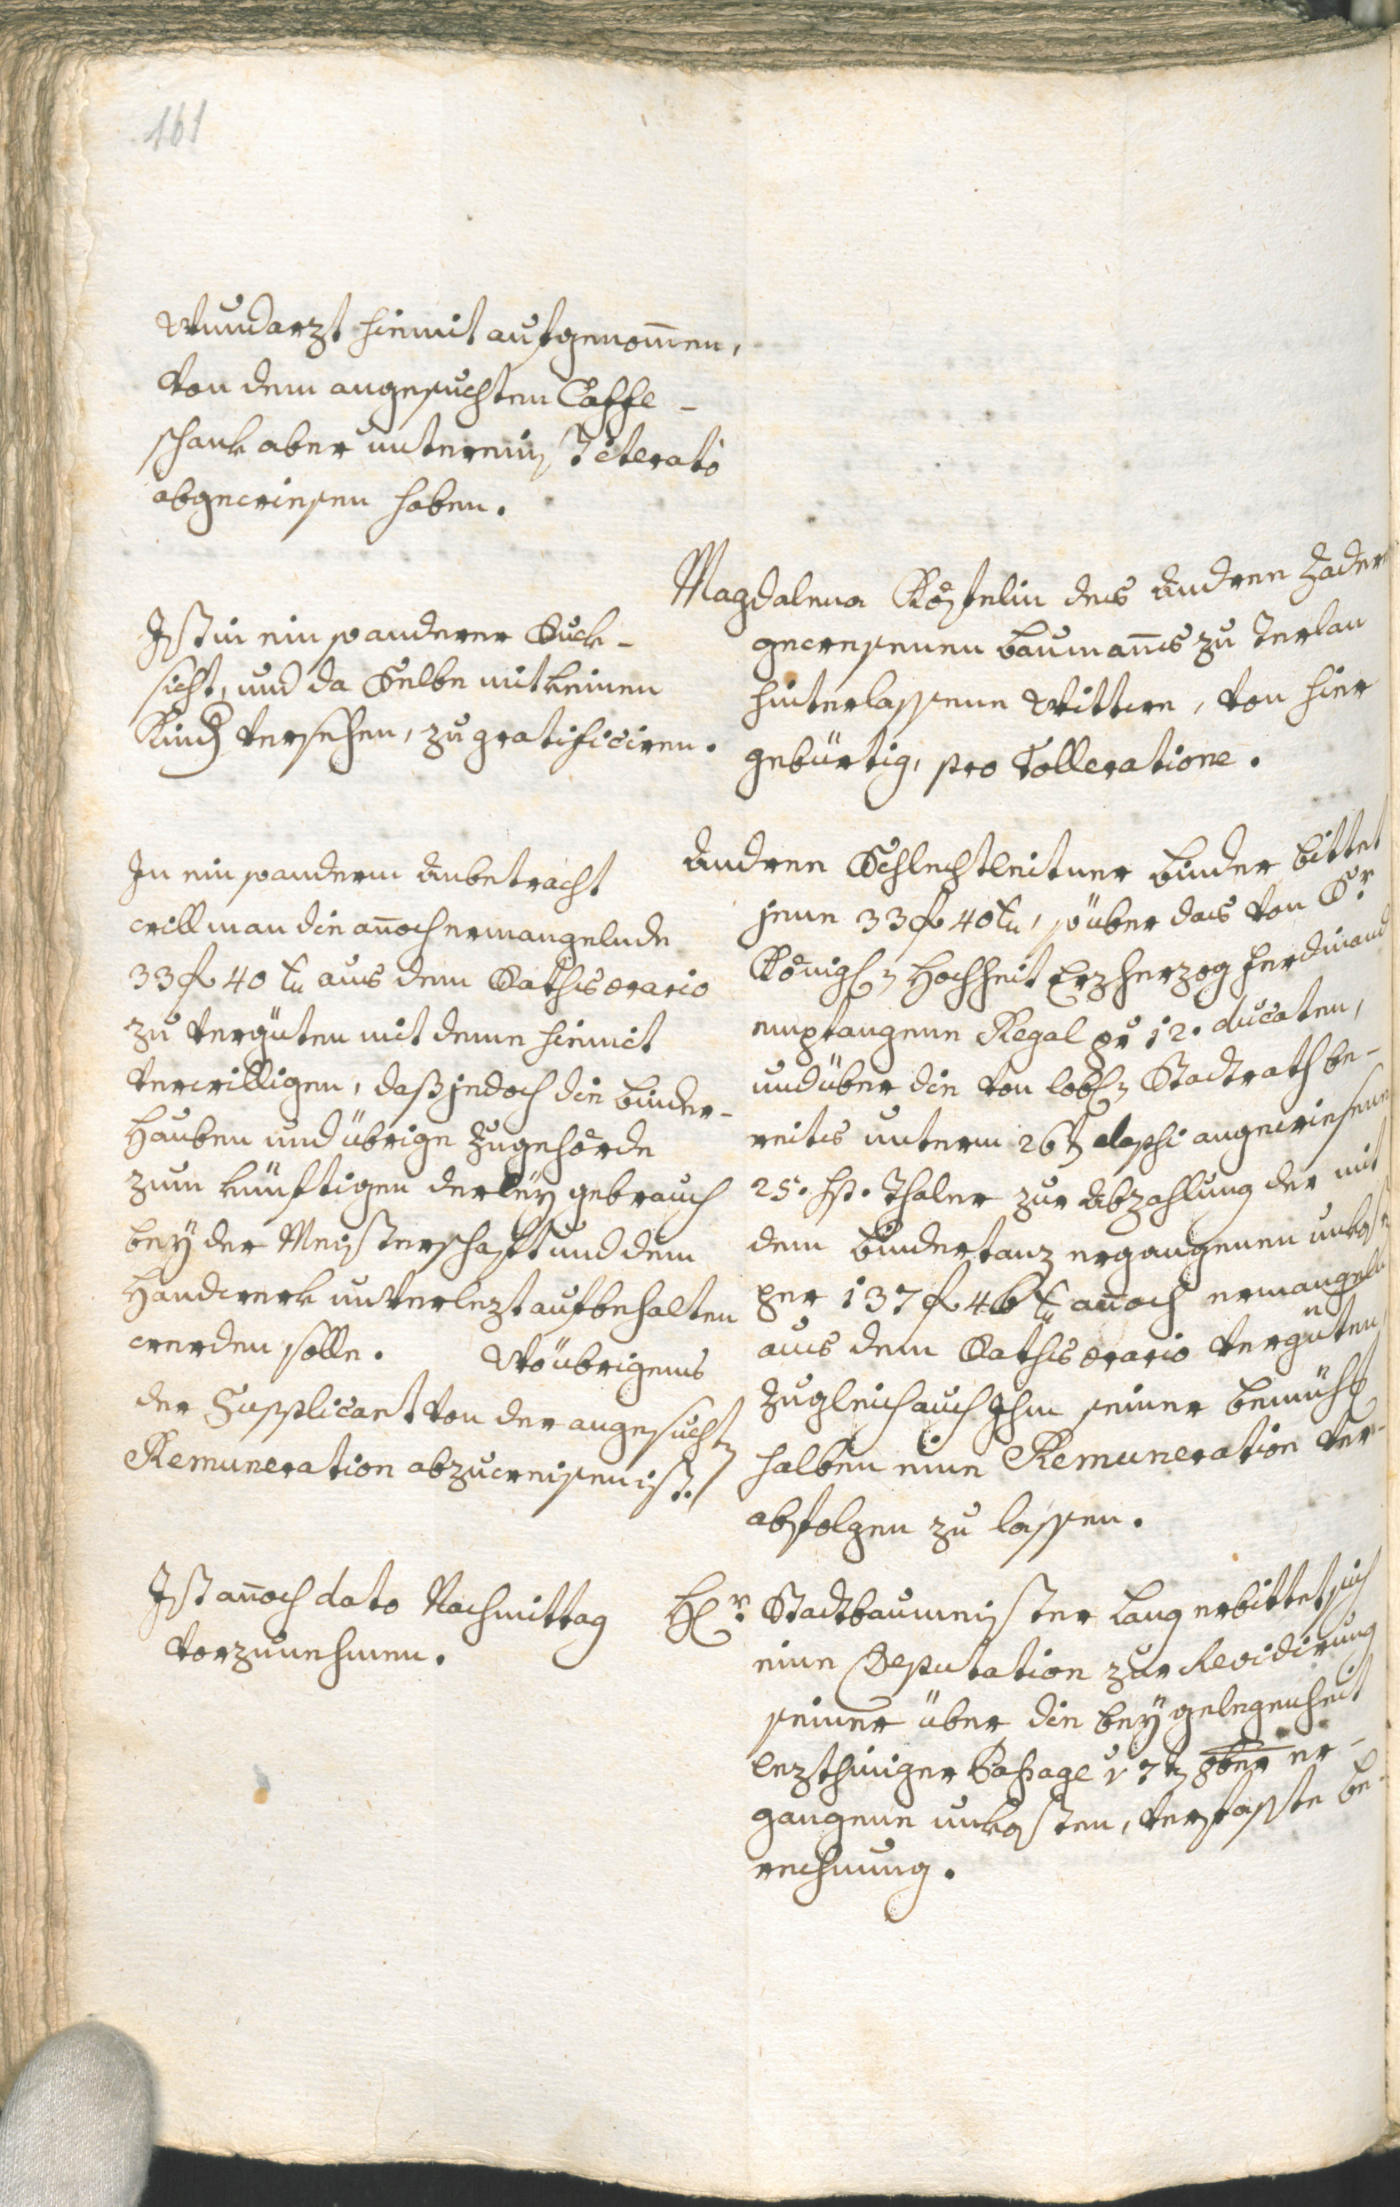 161
Wundarzt hiemit aufgenom̅en,
von dem angesuchten Caffe-
schank aber unter einß iterato
abgewiesen haben.
Ist in ein so anderer Ruck-
sicht, und da Selbe mit keinen
Kind versehen, zu gratificiren.
Magdalena Köstelin des Andree Zader
gewesenen Baumans zu Terlan
hinterlassene Wittwe, von hier
gebürtig, pro Tolleratione.
In ein so anderm Anbetracht
will man die an̅och ermangelnde
33 f 40 kr aus dem Rathsærario
zu vergüten mit deme hiemit
verwilligen, daß jedoch die Binder-
Hauben und übrige Zugehörde
zum künftigen derley gebrauch
bey der Meisterschaft und dem
Handwerk unverlezt aufbehalten
werden solle. Wo übrigens
der Supplicant von der angesuchtn
Remuneration abzuweisen ist.
Andree Schlechtleitner Binder bittet
jene 33 f 40 kr, so über das von Sr
Königl. Hochheit Erzherzog Ferdinand
empfangene Regal pr 12. ducaten,
und über die von löbl. Stadtrath be-
reits unterm 26t elapsi angewiesene
25. sp. Thaler zur Abzahlung der mit
dem Bindertanz ergangenen unkost
per 137 f 46 kr an̅och ermangeln
aus dem Rathsærario vergüten
zugleich auch Ihm seiner bemüh
halben eine Remuneration ver-
abfolgen zu lassen.
Ist an̅och dato Nachmittag
vorzunehmen.
Hr. Stadtbaumeister Lang erbittet sich
eine Deputation zur Revidirung
seiner über die bey gelegenheit
lezthiniger Passage v 7t 8ber er-
gangene unkosten, verfasste be-
rechnung.